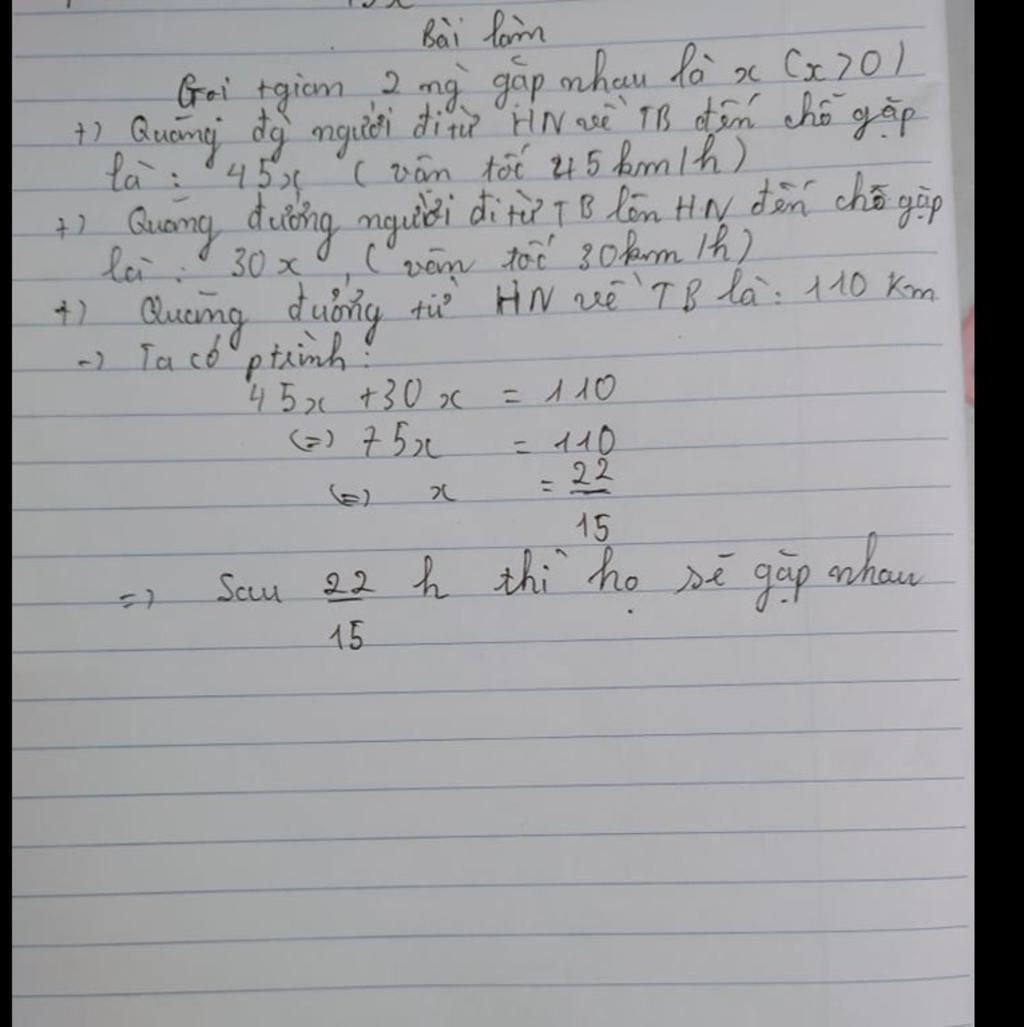 Bài làm
Gọi tgian 2 ng gặp nhau là x (x>0)
+) Quãng đg người đi từ HN về TB đến chỗ gặp
là: 45x (vận tốc 45km/h)
+) Quãng đường người đi từ TB lên HN đến chỗ gặp
là: 30x, (vận tốc 30km/h)
+) Quãng đường từ HN về TB là: 110 Km
-) Ta có ptrình:
45x +30x = 110
(=) 75x = 110
(=) x = 22/15
=) Sau 22/15 h thì họ sẽ gặp nhau